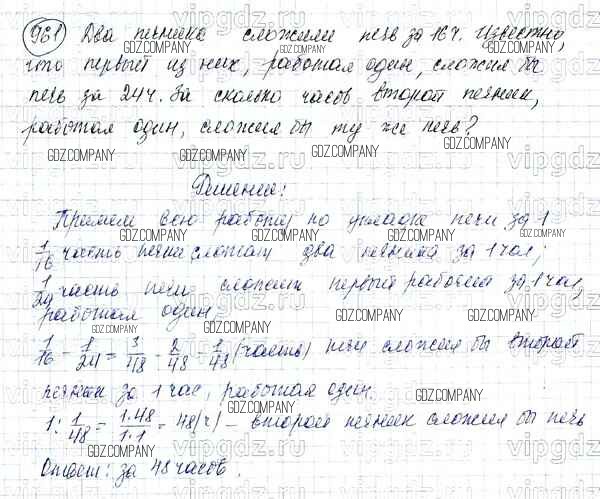 961 Два печника сложили печь за 16 ч. Известно,
что первый из них, работая один, сложил бы
печь за 24 ч. За сколько часов второй печник,
работая один, сложил бы ту же печь?
Решение:
Примем всю работу по укладке печи за 1
1/16 часть печи сложат два печника за 1 час;
1/24 часть печи сложит первый рабочий за 1 час,
работая один;
1/16 - 1/24 = 3/48 - 2/48 = 1/48 (часть) печи сложил бы второй
печник за 1 час, работая один.
1 : 1/48 = 1·48/1·1 = 48 (ч) – второй печник сложил бы печь
Ответ: за 48 часов.